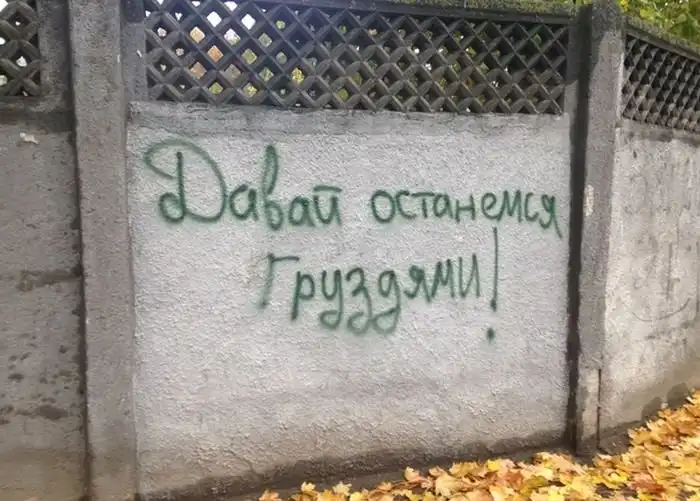 Давай останемся
груздями!